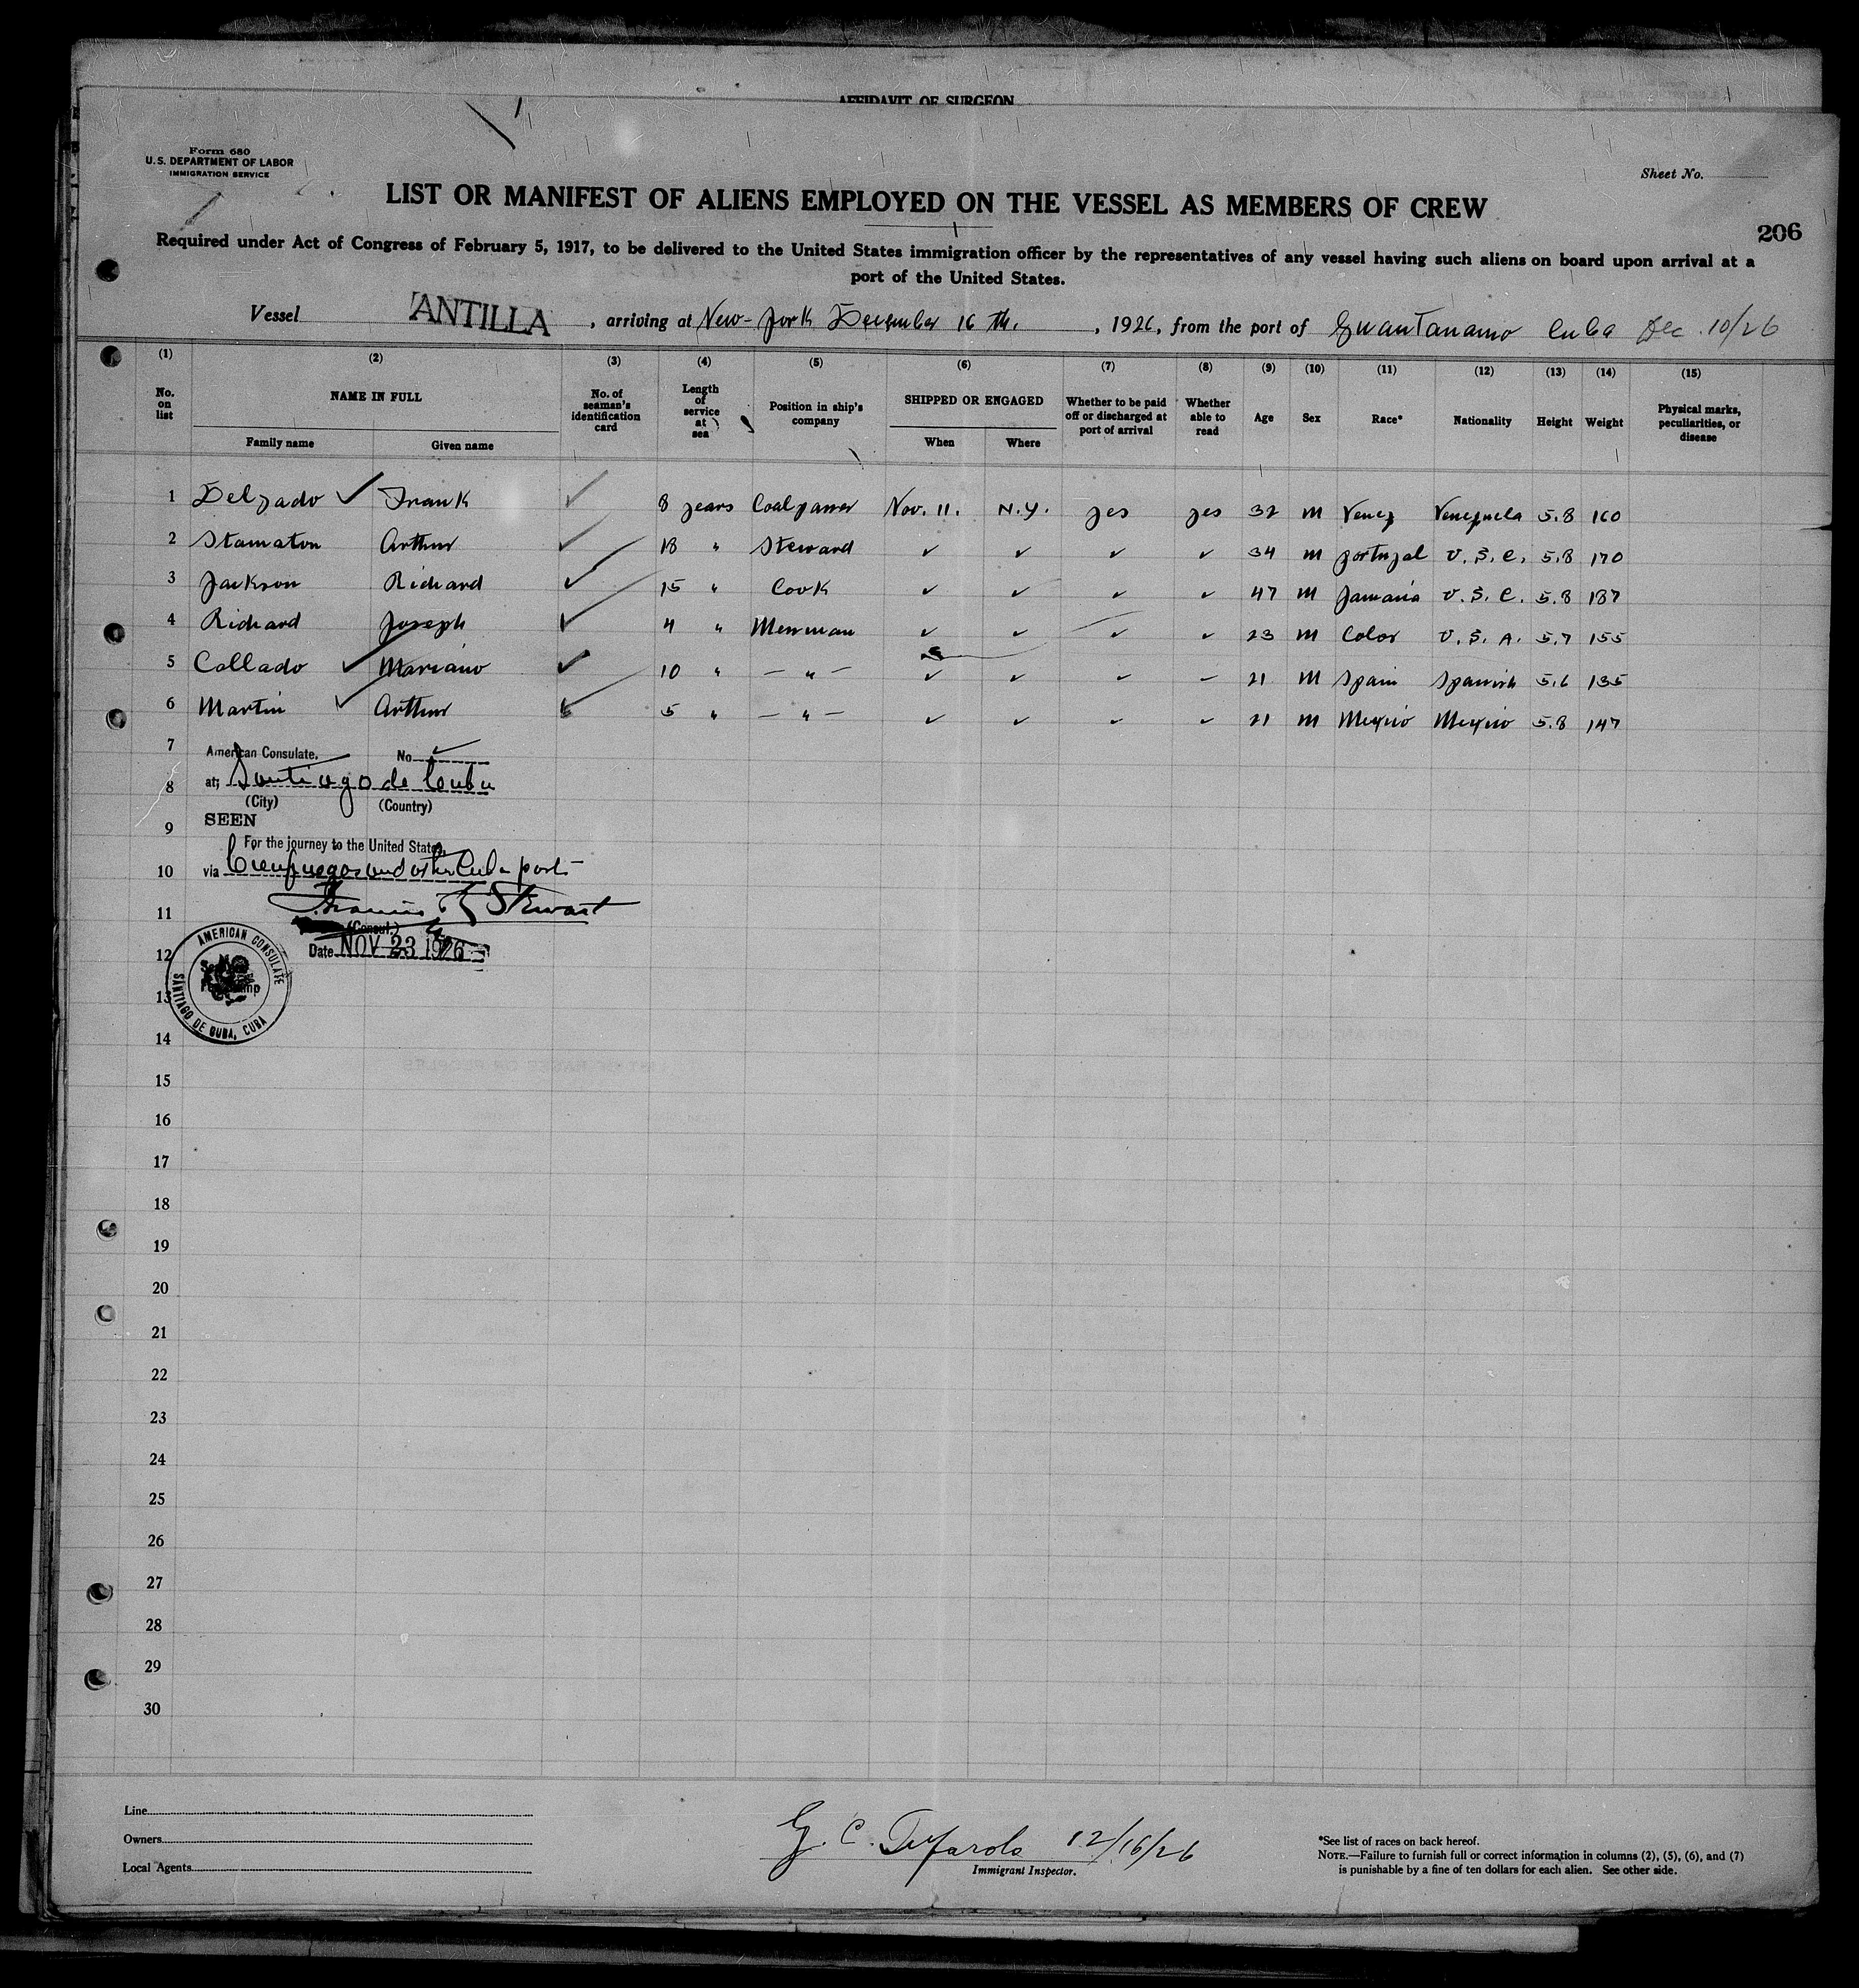 AFFIDAVIT OF SURGEON
Form 680
U.S. DEPARTMENT OF LABOR
IMMIGRATION SERVICE
Sheet No.
LIST OR MANIFEST OF ALIENS EMPLOYED ON THE VESSEL AS MEMBERS OF CREW
206
Required under Act of Congress of February 5, 1917, to be delivered to the United States immigration officer by the representatives of any vessel having such aliens on board upon arrival at a
port of the United States.
Vessel ANTILLA, arriving at New-York December 16 th., 1926, from the port of Guantanamo Cuba Dec. 10/26
(1) (2) (3) (4) (5) (6) (7) (8) (9) (10) (11) (12) (13) (14) (15)
No. on list
NAME IN FULL
Family name Given name
No. of seaman's identification card
Length of service at sea
Position in ship's company
SHIPPED OR ENGAGED
When Where
Whether to be paid off or discharged at port of arrival
Whether able to read
Age Sex Race* Nationality Height Weight
Physical marks, peculiarities, or disease
1 Delgado ✓ Frank ✓ 8 years Coalpasser Nov. 11. N.Y. yes yes 32 M Venez Venezuela 5.8 160
2 Stamaton Arthur ✓ 18 " Steward ✓ ✓ ✓ ✓ 34 M Portugal U.S.C. 5.8 170
3 Jackson Richard ✓ 15 " Cook ✓ ✓ ✓ ✓ 47 M Jamaica U.S.C. 5.8 187
4 Richard Joseph ✓ 4 " Messman ✓ ✓ ✓ ✓ 23 M Color U.S.A. 5.7 155
5 Collado ✓ Mariano ✓ 10 " — " — ✓ ✓ ✓ ✓ 21 M Spain Spanish 5.6 135
6 Martin ✓ Arthur ✓ 5 " — " — ✓ ✓ ✓ ✓ 21 M Mexico Mexico 5.8 147
7 American Consulate. No. ✓
8 at; Santiago de Cuba
(City) (Country)
9 SEEN
For the journey to the United States,
10 via Cienfuegos and other Cuba ports
11 Francis R Stewart
(Consul.)
12 Date NOV 23 1926
AMERICAN CONSULATE
SANTIAGO DE CUBA, CUBA
13
14
15
16
17
18
19
20
21
22
23
24
25
26
27
28
29
30
Line
Owners
Local Agents
G. C. 12/16/26
Immigrant Inspector.
*See list of races on back hereof.
NOTE.—Failure to furnish full or correct information in columns (2), (5), (6), and (7)
is punishable by a fine of ten dollars for each alien. See other side.